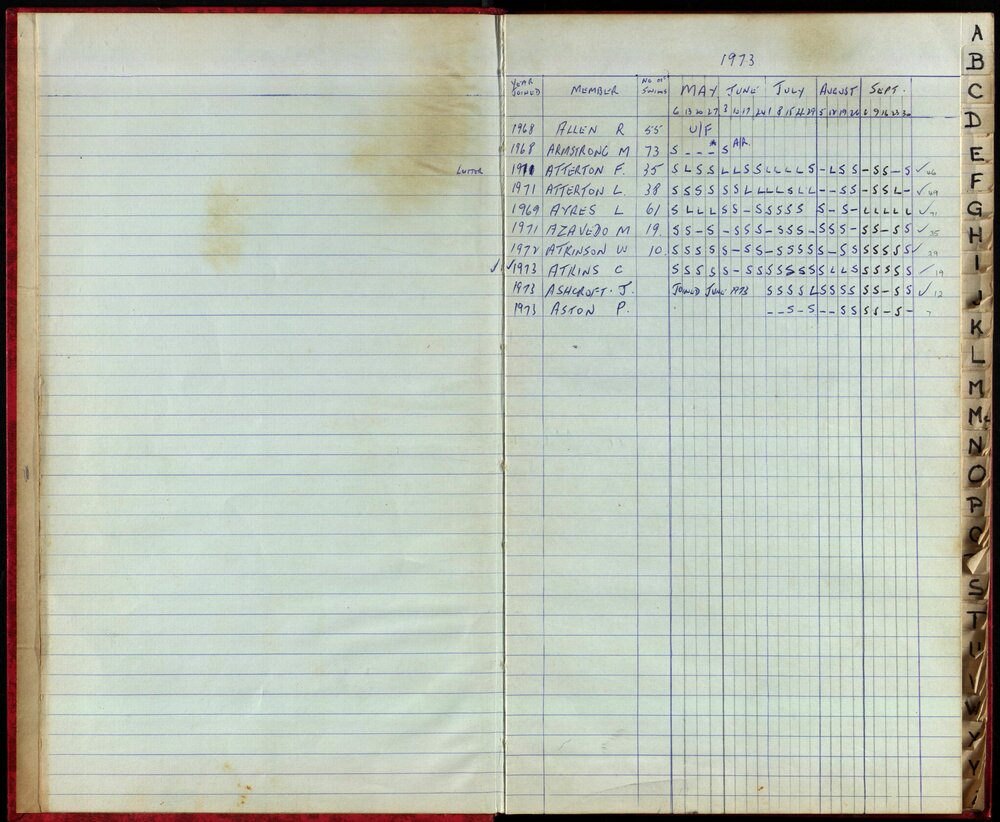 1973
YEAR JOINED MEMBER NO OF SWIMS MAY JUNE JULY AUGUST SEPT.
6 13 20 27 3 10 17 24 1 8 15 22 29 5 12 19 26 2 9 16 23 30
1968 ALLEN R 55 U/F
1968 ARMSTRONG M 73 S - - - * S A/R.
1971 ATTERTON F. 35 S L S S L L S S L L L L S - L S S - S S - S ✓ 46
1971 ATTERTON L 38 S S S S S S L L L L S L L - - S S - S S L - ✓ 49
1969 AYRES L 61 S L L L S S - S S S S S S - S - L L L L L ✓ 71
1971 AZAVEDO M 19. S S - S - S S - S S S - S S S - S S - S S ✓ 35
1972 ATKINSON W 10. S S S S S - S S - S S S S - S S S S S S S ✓ 29
✓ ✓ 1973 ATKINS C S S S S S - S S S S S S S S L L S S S S S S ✓ 19
1973 ASHCROFT. J. JOINED JUNE 1973 S S S S L S S S S S S - S S ✓ 12
1973 ASTON P. - - S - S - - S S S S - S - 7
A
B
C
D
E
F
G
H
I
J
K
L
M
Mc
N
O
P
S
T
U
W
Y